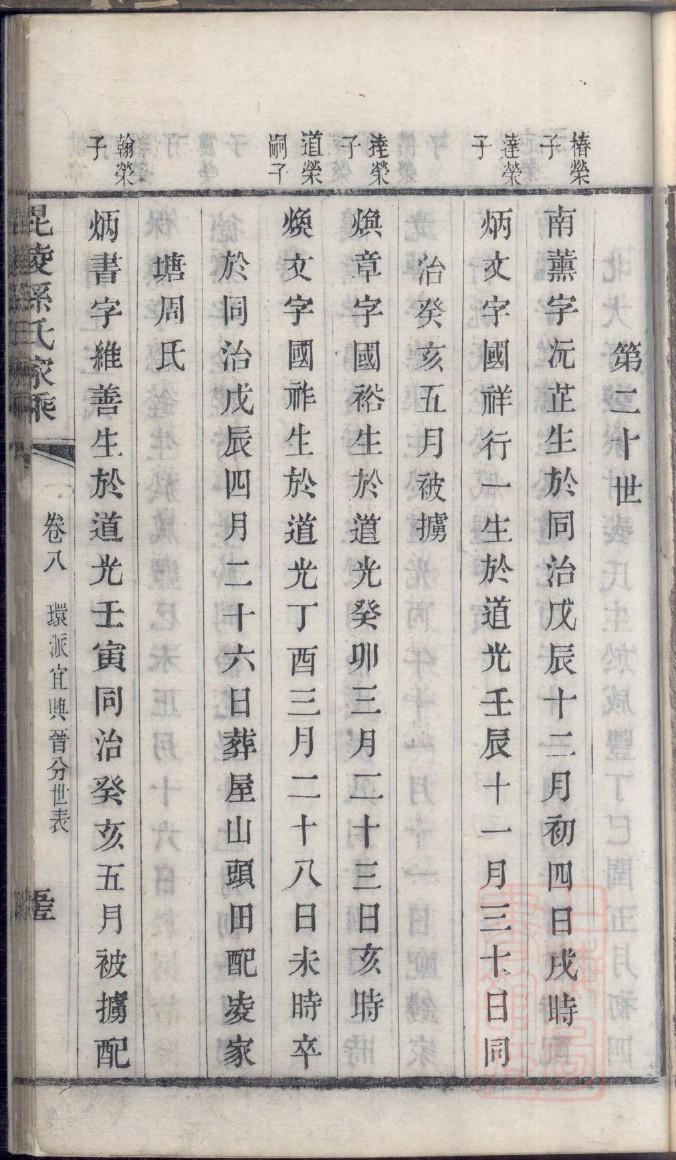 第二十世
椿榮子
南薰字沅芷生於同治戊辰十二月初四日戌時
達榮子
炳文字國祥行一生於道光壬辰十一月三十日同
治癸亥五月被擄
達榮子
煥章字國裕生於道光癸卯三月二十三日亥時
道榮嗣子
煥文字國祚生於道光丁酉三月二十八日未時卒
於同治戊辰四月二十六日葬屋山頭田配凌家
塘周氏
翰榮子
炳書字維善生於道光壬寅同治癸亥五月被擄配
毘陵孫氏家乘
卷八
環派宜興晉分世表